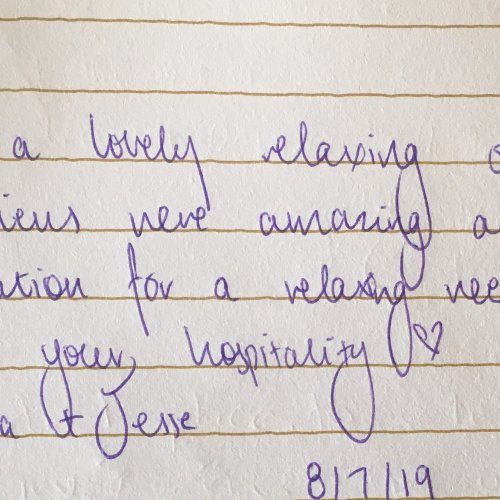 a lovely relaxing
were amazing a
for a relaxing
your hospitality ♡
+ Jesse
8/7/19